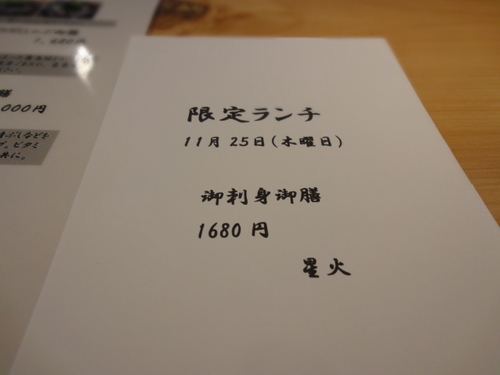 限定ランチ
11月25日(木曜日)
御刺身御膳
1680円
星火
膳
,000円